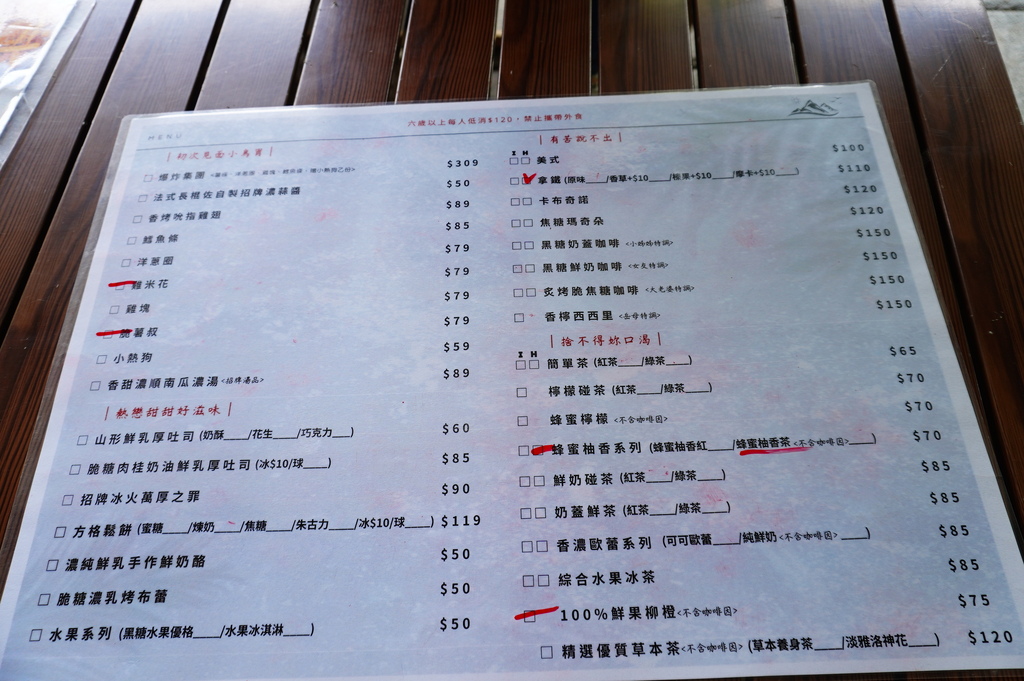 MENU
六歲以上每人低消$120，禁止攜帶外食
｜初次見面小鳥胃｜
□ 爆炸集團 $309
□ 法式長棍佐自製招牌濃蒜醬 $50
□ 香烤吮指雞翅 $89
□ 鱈魚條 $85
□ 洋蔥圈 $79
□ 雞米花 $79
□ 雞塊 $79
□ 脆薯叔 $79
□ 小熱狗 $59
□ 香甜濃順南瓜濃湯<招牌湯品> $89
｜熱戀甜甜好滋味｜
□ 山形鮮乳厚吐司 (奶酥____/花生____/巧克力___) $60
□ 脆糖肉桂奶油鮮乳厚吐司 (冰$10/球____) $85
□ 招牌冰火萬厚之罪 $90
□ 方格鬆餅 (蜜糖____/煉奶____/焦糖____/朱古力____/冰$10/球____) $119
□ 濃純鮮乳手作鮮奶酪 $50
□ 脆糖濃乳烤布蕾 $50
□ 水果系列 (黑糖水果優格____/水果冰淇淋____) $50
｜有苦說不出｜
I H
□□ 美式 $100
□□ 拿鐵 (原味____/香草+$10____/榛果+$10____/摩卡+$10____) $120
□□ 卡布奇諾 $120
□□ 焦糖瑪奇朵 $120
□□ 黑糖奶蓋咖啡 <小姊姊特調> $150
□□ 黑糖鮮奶咖啡 <女友特調> $150
□□ 炙烤脆焦糖咖啡 <大老婆特調> $150
□ 香檸西西里 <岳母特調> $150
｜捨不得妳口渴｜
I H
□□ 簡單茶 (紅茶____/綠茶____) $65
□ 檸檬碰茶 (紅茶____/綠茶____) $70
□ 蜂蜜檸檬 <不含咖啡因> $70
□□ 蜂蜜柚香系列 (蜂蜜柚香紅____/蜂蜜柚香茶<不含咖啡因>____) $70
□□ 鮮奶碰茶 (紅茶____/綠茶____) $85
□□ 奶蓋鮮茶 (紅茶____/綠茶____) $85
□□ 香濃歐蕾系列 (可可歐蕾____/純鮮奶<不含咖啡因>____) $85
□□ 綜合水果冰茶 $85
□ 100%鮮果柳橙<不含咖啡因> $75
□ 精選優質草本茶<不含咖啡因> (草本養身茶____/淡雅洛神花____) $120